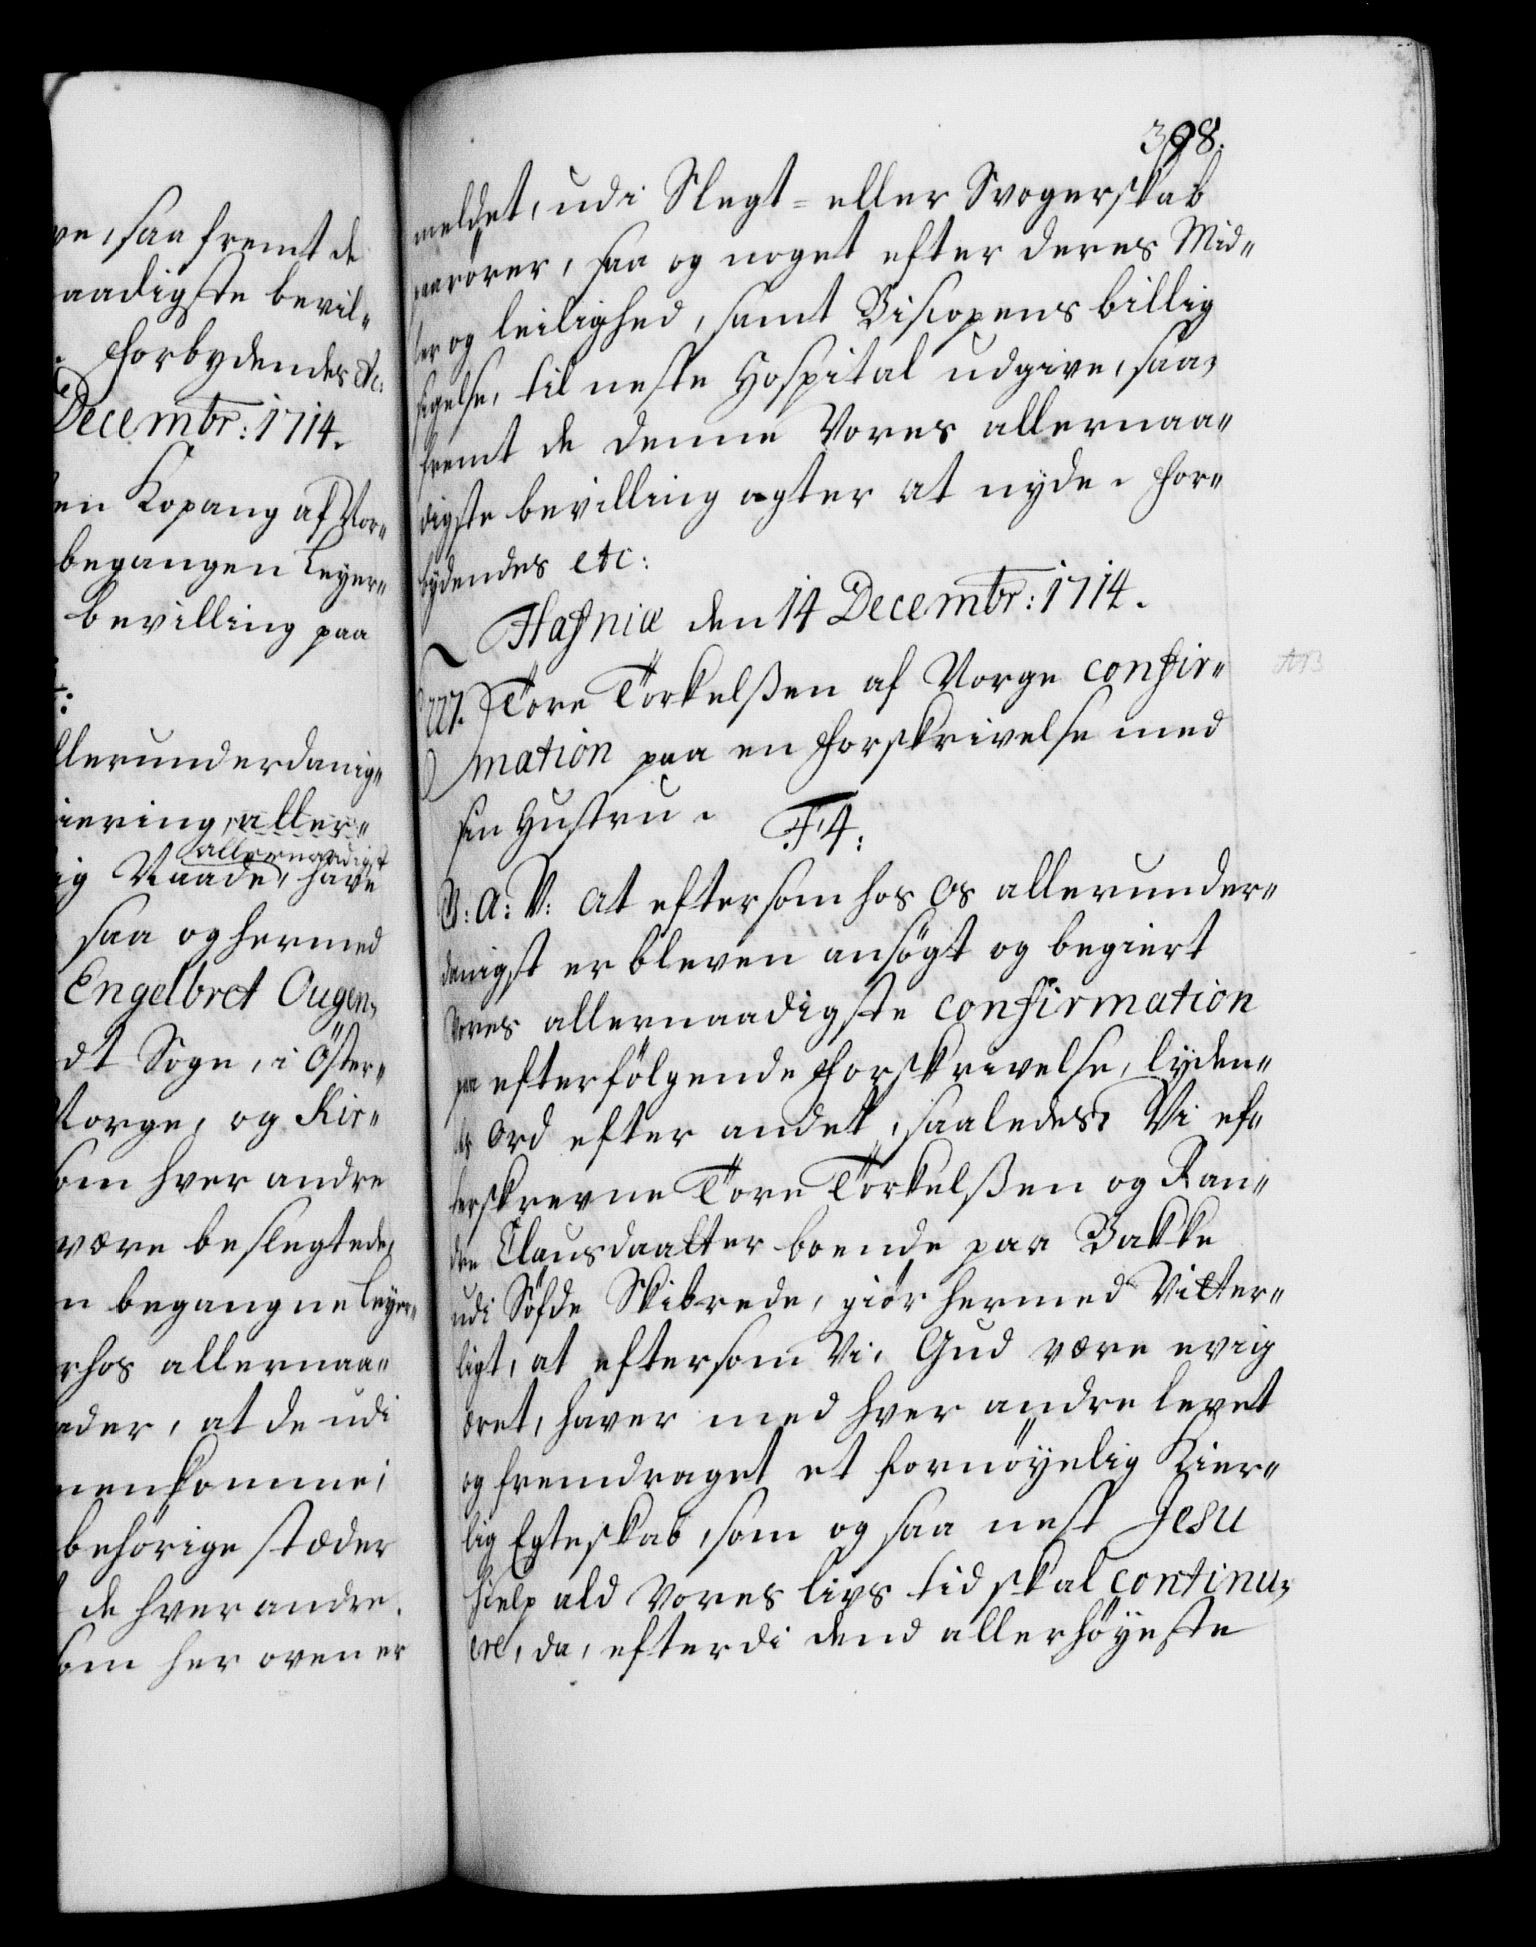 ve, saa fremt de
aadigste bevil„
Forbydendes etc:
Decembr: 1714.
en Kopang af Nor„
begangen Leyer„
bevilling paa
llerunderdanig„
iering, aller„
allernaadigst
ig Naade, have
saa og hermed
Engelbret Ougen„
dt Sogn, i Öster„
Norge, og Kir„
om hver andre
være beslegtede,
n begangne Leyer„
rhos allernaa„
eder, at de udi
menkomme;
behörige stæder
de hverandre.
som her oven er
398.
meldet, udi Slegt- eller Svogerskab
paarörer, saa og noget efter deres Mid„
ler og leilighed, samt Biscopens billig
sigelse, til neste Hospital udgive, saa„
fremt de denne Vores allernaa„
digste bevilling agter at nyde. For„
bydendes etc:
Hafniæ den 14 Decembr: 1714.
Tore Torkelßen af Norge confir„
mation paa en Forskrivelse med
sin Hustru. F4:
G: A: V: At eftersom hos Os allerunder„
danigst er bleven ansögt og begiert
Vores allernaadigste confirmation
paa efterfölgende Forskrivelse, lyden„
des Ord efter andet, saaledes: Vi ef„
terskrevne Tore Torkelßen og Ran„
die Clausdaatter boende paa Bakke
udi Söfde Skibrede, giör hermed Vitter„
ligt, at eftersom Vi, Gud være evig
æret, haver med hver andre levet
og fremdraget et fornöyelig Kier„
lig Egteskab, som og saa nest Jesu
hielp ald Vores livs tid skal continu„
ere, da, efterdi dend allerhöyeste